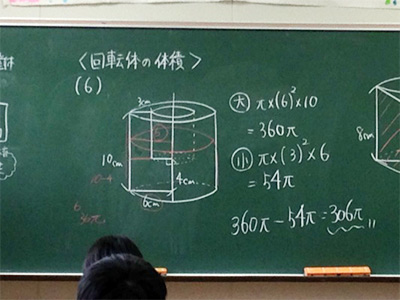 〈回転体の体積〉
(6)
3cm
⑤
10cm
10-4
4cm
6cm
6
36π
大 π×(6)²×10
=360π
小 π×(3)²×6
=54π
360π-54π=306π
8cm